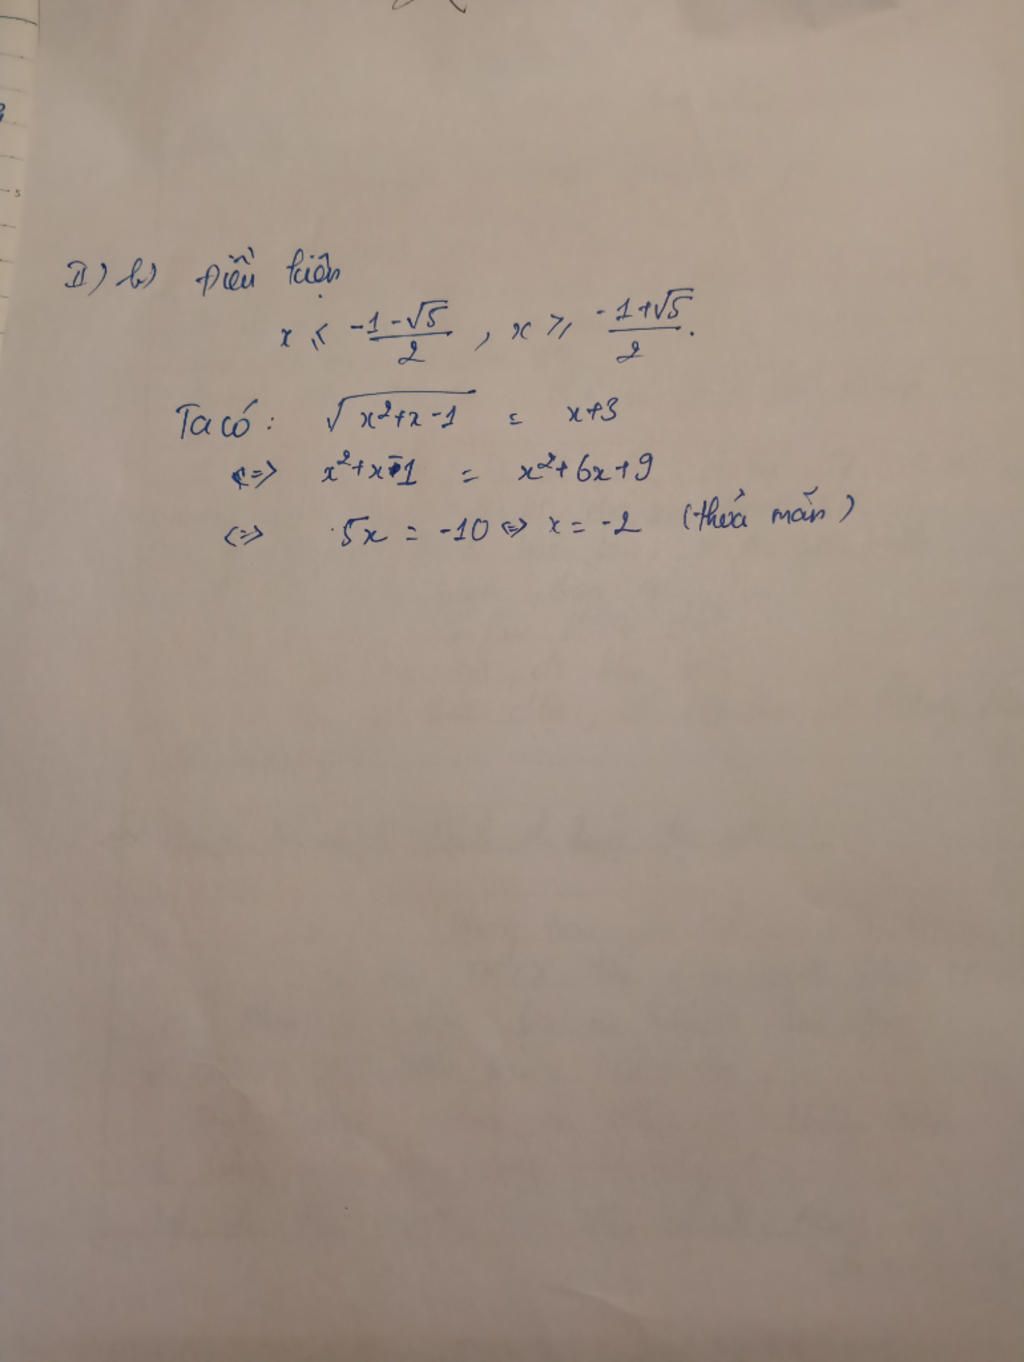 II) b) Điều kiện
x ⩽ \frac{-1-√5}{2} , x ⩾ \frac{-1+√5}{2}.
Ta có: √(x²+x-1) = x+3
<=> x²+x-1 = x²+6x+9
<=> 5x = -10 <=> x = -2 (thỏa mãn)